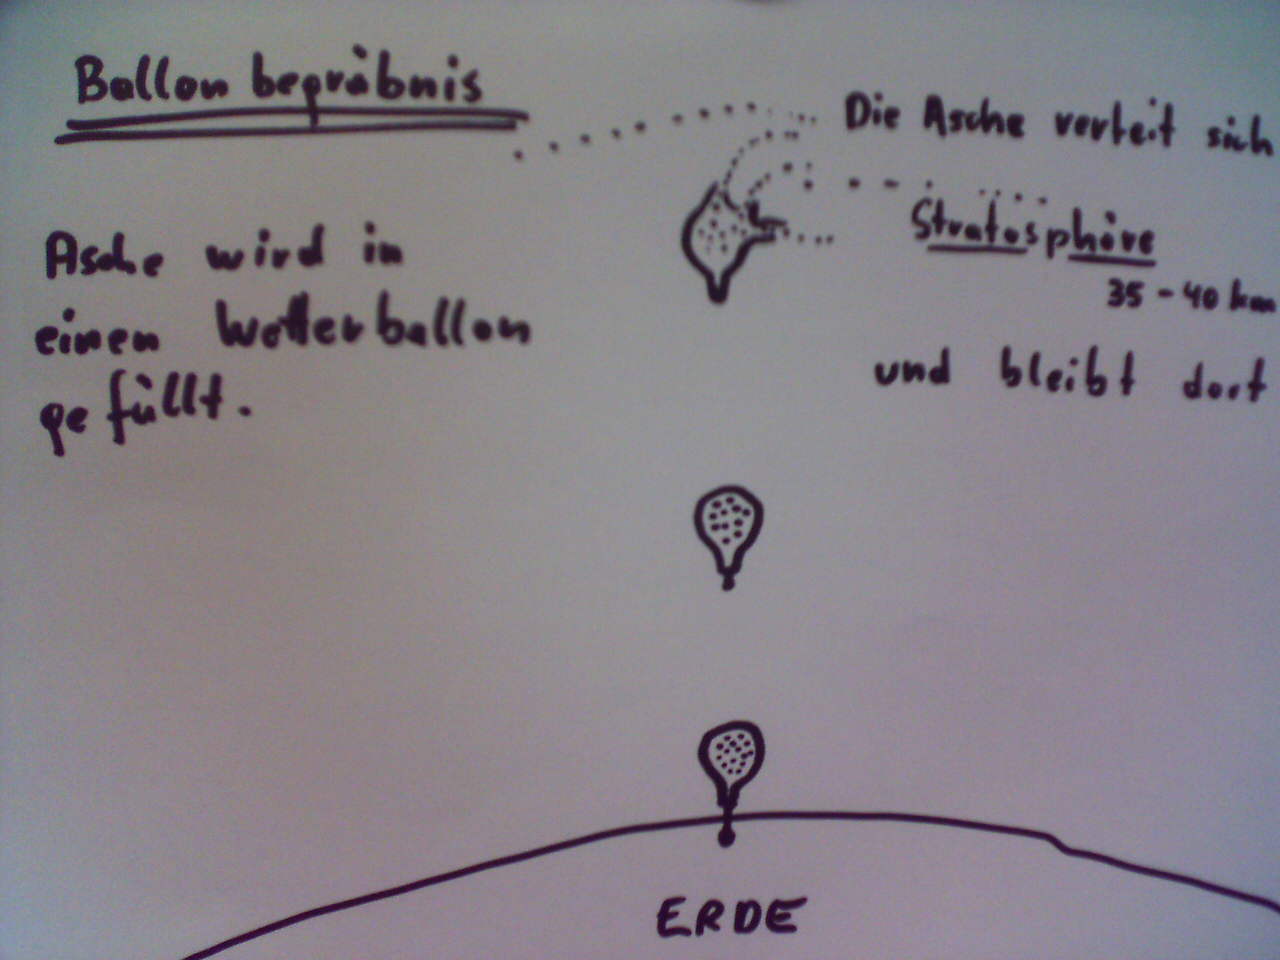 Ballonbegräbnis
Asche wird in
einen Wetterballon
gefüllt.
Die Asche verteit sich
Stratosphäre
35 - 40 km
und bleibt dort
ERDE